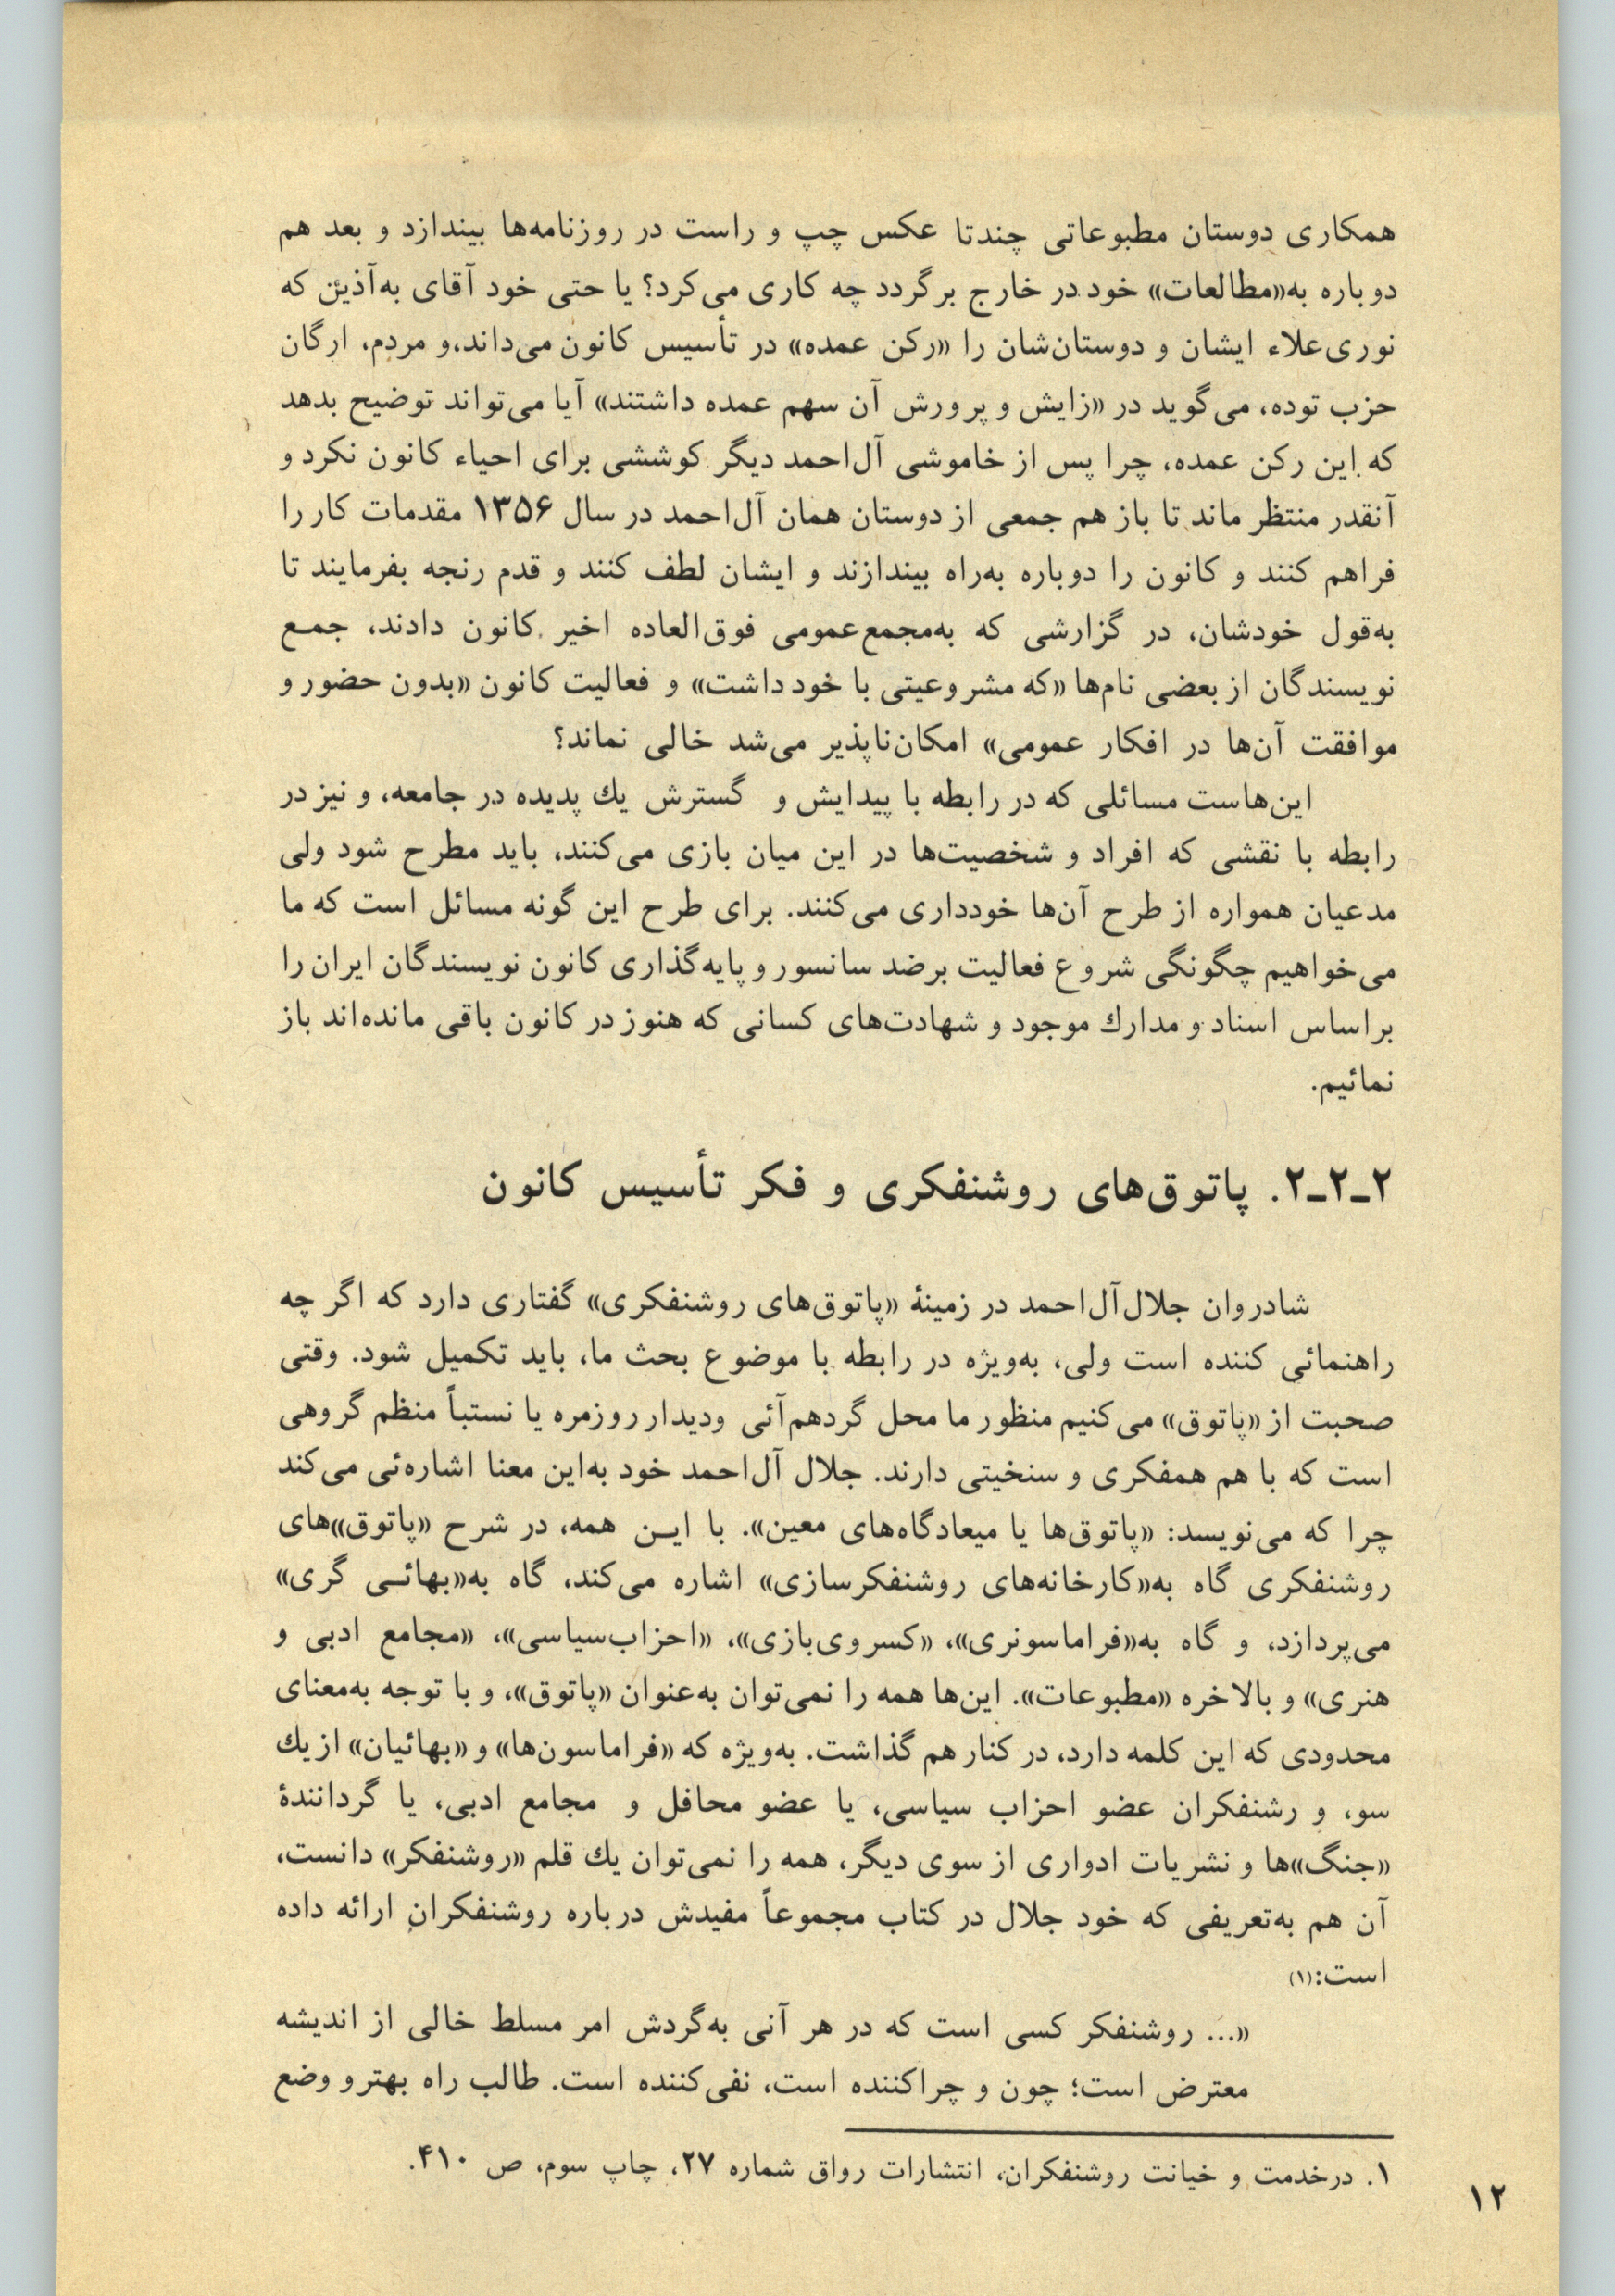 همکاری دوستان مطبوعاتی چندتا عکس چپ و راست در روزنامه‌ها بیندازد و بعد هم
دوباره به«مطالعات» خود در خارج برگردد چه کاری می‌کرد؟ یا حتی خود آقای به‌آذین که
نوری‌علاء ایشان و دوستان‌شان را «رکن عمده» در تأسیس کانون می‌داند،و مردم، ارگان
حزب توده، می‌گوید در «زایش و پرورش آن سهم عمده داشتند» آیا می‌تواند توضیح بدهد
که این رکن عمده، چرا پس از خاموشی آل‌احمد دیگر کوششی برای احیاء کانون نکرد و
آنقدر منتظر ماند تا باز هم جمعی از دوستان همان آل‌احمد در سال ۱۳۵۶ مقدمات کار را
فراهم کنند و کانون را دوباره به‌راه بیندازند و ایشان لطف کنند و قدم رنجه بفرمایند تا
به‌قول خودشان، در گزارشی که به‌مجمع‌عمومی فوق‌العاده اخیر کانون دادند، جمـع
نویسندگان از بعضی نام‌ها «که مشروعیتی با خود داشت» و فعالیت کانون «بدون حضور و
موافقت آن‌ها در افکار عمومی» امکان‌ناپذیر می‌شد خالی نماند؟
این‌هاست مسائلی که در رابطه با پیدایش و گسترش یك پدیده در جامعه، و نیز در
رابطه با نقشی که افراد و شخصیت‌ها در این میان بازی می‌کنند، باید مطرح شود ولی
مدعیان همواره از طرح آن‌ها خودداری می‌کنند. برای طرح این گونه مسائل است که ما
می‌خواهیم چگونگی شروع فعالیت برضد سانسور و پایه‌گذاری کانون نویسندگان ایران را
براساس اسناد و مدارك موجود و شهادت‌های کسانی که هنوز در کانون باقی مانده‌اند باز
نمائیم.
۲ـ۲ـ۲. پاتوق‌های روشنفکری و فکر تأسیس کانون
شادروان جلال‌آل‌احمد در زمینهٔ «پاتوق‌های روشنفکری» گفتاری دارد که اگر چه
راهنمائی کننده است ولی، به‌ویژه در رابطه با موضوع بحث ما، باید تکمیل شود. وقتی
صحبت از «پاتوق» می‌کنیم منظور ما محل گردهم‌آئی ودیدار روزمره یا نستباً منظم گروهی
است که با هم همفکری و سنخیتی دارند. جلال آل‌احمد خود به‌این معنا اشاره‌ئی می‌کند
چرا که می‌نویسد: «پاتوق‌ها یا میعادگاه‌های معین». با ایـن همه، در شرح «پاتوق»های
روشنفکری گاه به«کارخانه‌های روشنفکرسازی» اشاره می‌کند، گاه به«بهائـی گری»
می‌پردازد، و گاه به«فراماسونری»، «کسروی‌بازی»، «احزاب‌سیاسی»، «مجامع ادبی و
هنری» و بالاخره «مطبوعات». این‌ها همه را نمی‌توان به‌عنوان «پاتوق»، و با توجه به‌معنای
محدودی که این کلمه دارد، در کنار هم گذاشت. به‌ویژه که «فراماسون‌ها» و «بهائیان» از یك
سو، و رشنفکران عضو احزاب سیاسی، یا عضو محافل و مجامع ادبی، یا گردانندهٔ
«جنگ»ها و نشریات ادواری از سوی دیگر، همه را نمی‌توان یك قلم «روشنفکر» دانست،
آن هم به‌تعریفی که خود جلال در کتاب مجموعاً مفیدش درباره روشنفکران ارائه داده
است:(۱)
«... روشنفکر کسی است که در هر آنی به‌گردش امر مسلط خالی از اندیشه
معترض است؛ چون و چراکننده است، نفی‌کننده است. طالب راه بهتر و وضع
۱. درخدمت و خیانت روشنفکران، انتشارات رواق شماره ۲۷، چاپ سوم، ص ۴۱۰.
۱۲